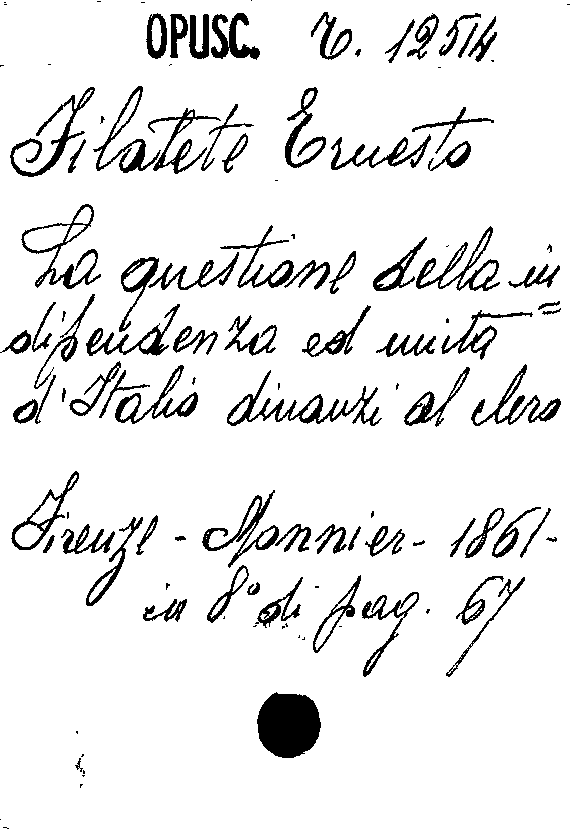 OPUSC. T. 12514
Filalete Ernesto
La questione della in=
dipendenza ed unità
d'Italia dinanzi al clero
Firenze - Monnier - 1861 -
in 8° di pag. 67